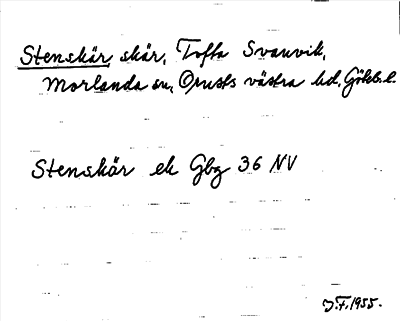 Stenskär, skär, Tofta Svanvik,
Morlanda sn, Orusts västra hd, Göteb. l.
Stenskär ek Gbg 36 NV
J.F. 1955.